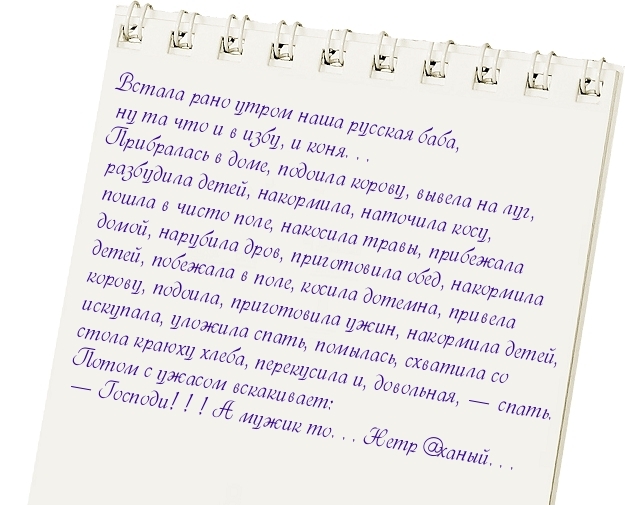 Встала рано утром наша русская баба,
ну та что и в избу, и коня. . .
Прибралась в доме, подоила корову, вывела на луг,
разбудила детей, накормила, наточила косу,
пошла в чисто поле, накосила травы, прибежала
домой, нарубила дров, приготовила обед, накормила
детей, побежала в поле, косила дотемна, привела
корову, подоила, приготовила ужин, накормила детей,
искупала, уложила спать, помылась, схватила со
стола краюху хлеба, перекусила и, довольная, — спать.
Потом с ужасом вскакивает:
— Господи! ! ! А мужик то. . . Нетр @ханый. . .